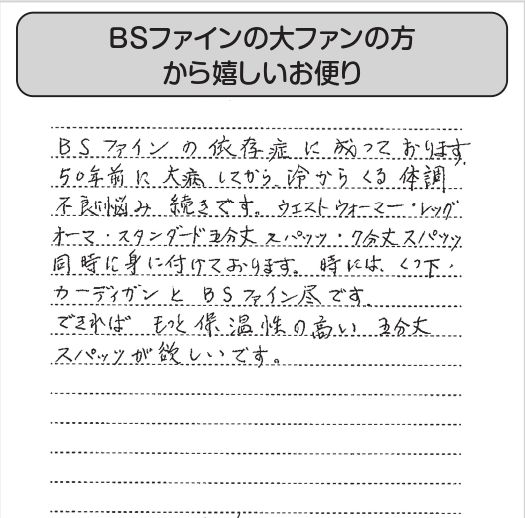 BSファインの大ファンの方
から嬉しいお便り
BSファインの依存症に成っております。
50年前に大病してから、冷からくる体調
不良に悩み続きです。ウエストウォーマー・レッグ
オーマ・スタンダード五分丈スパッツ・7分丈スパッツ
同時に身に付けております。時には、くつ下・
カーディガンとBSファイン尽です。
できれば もっと保温性の高い 五分丈
スパッツが欲しいです。